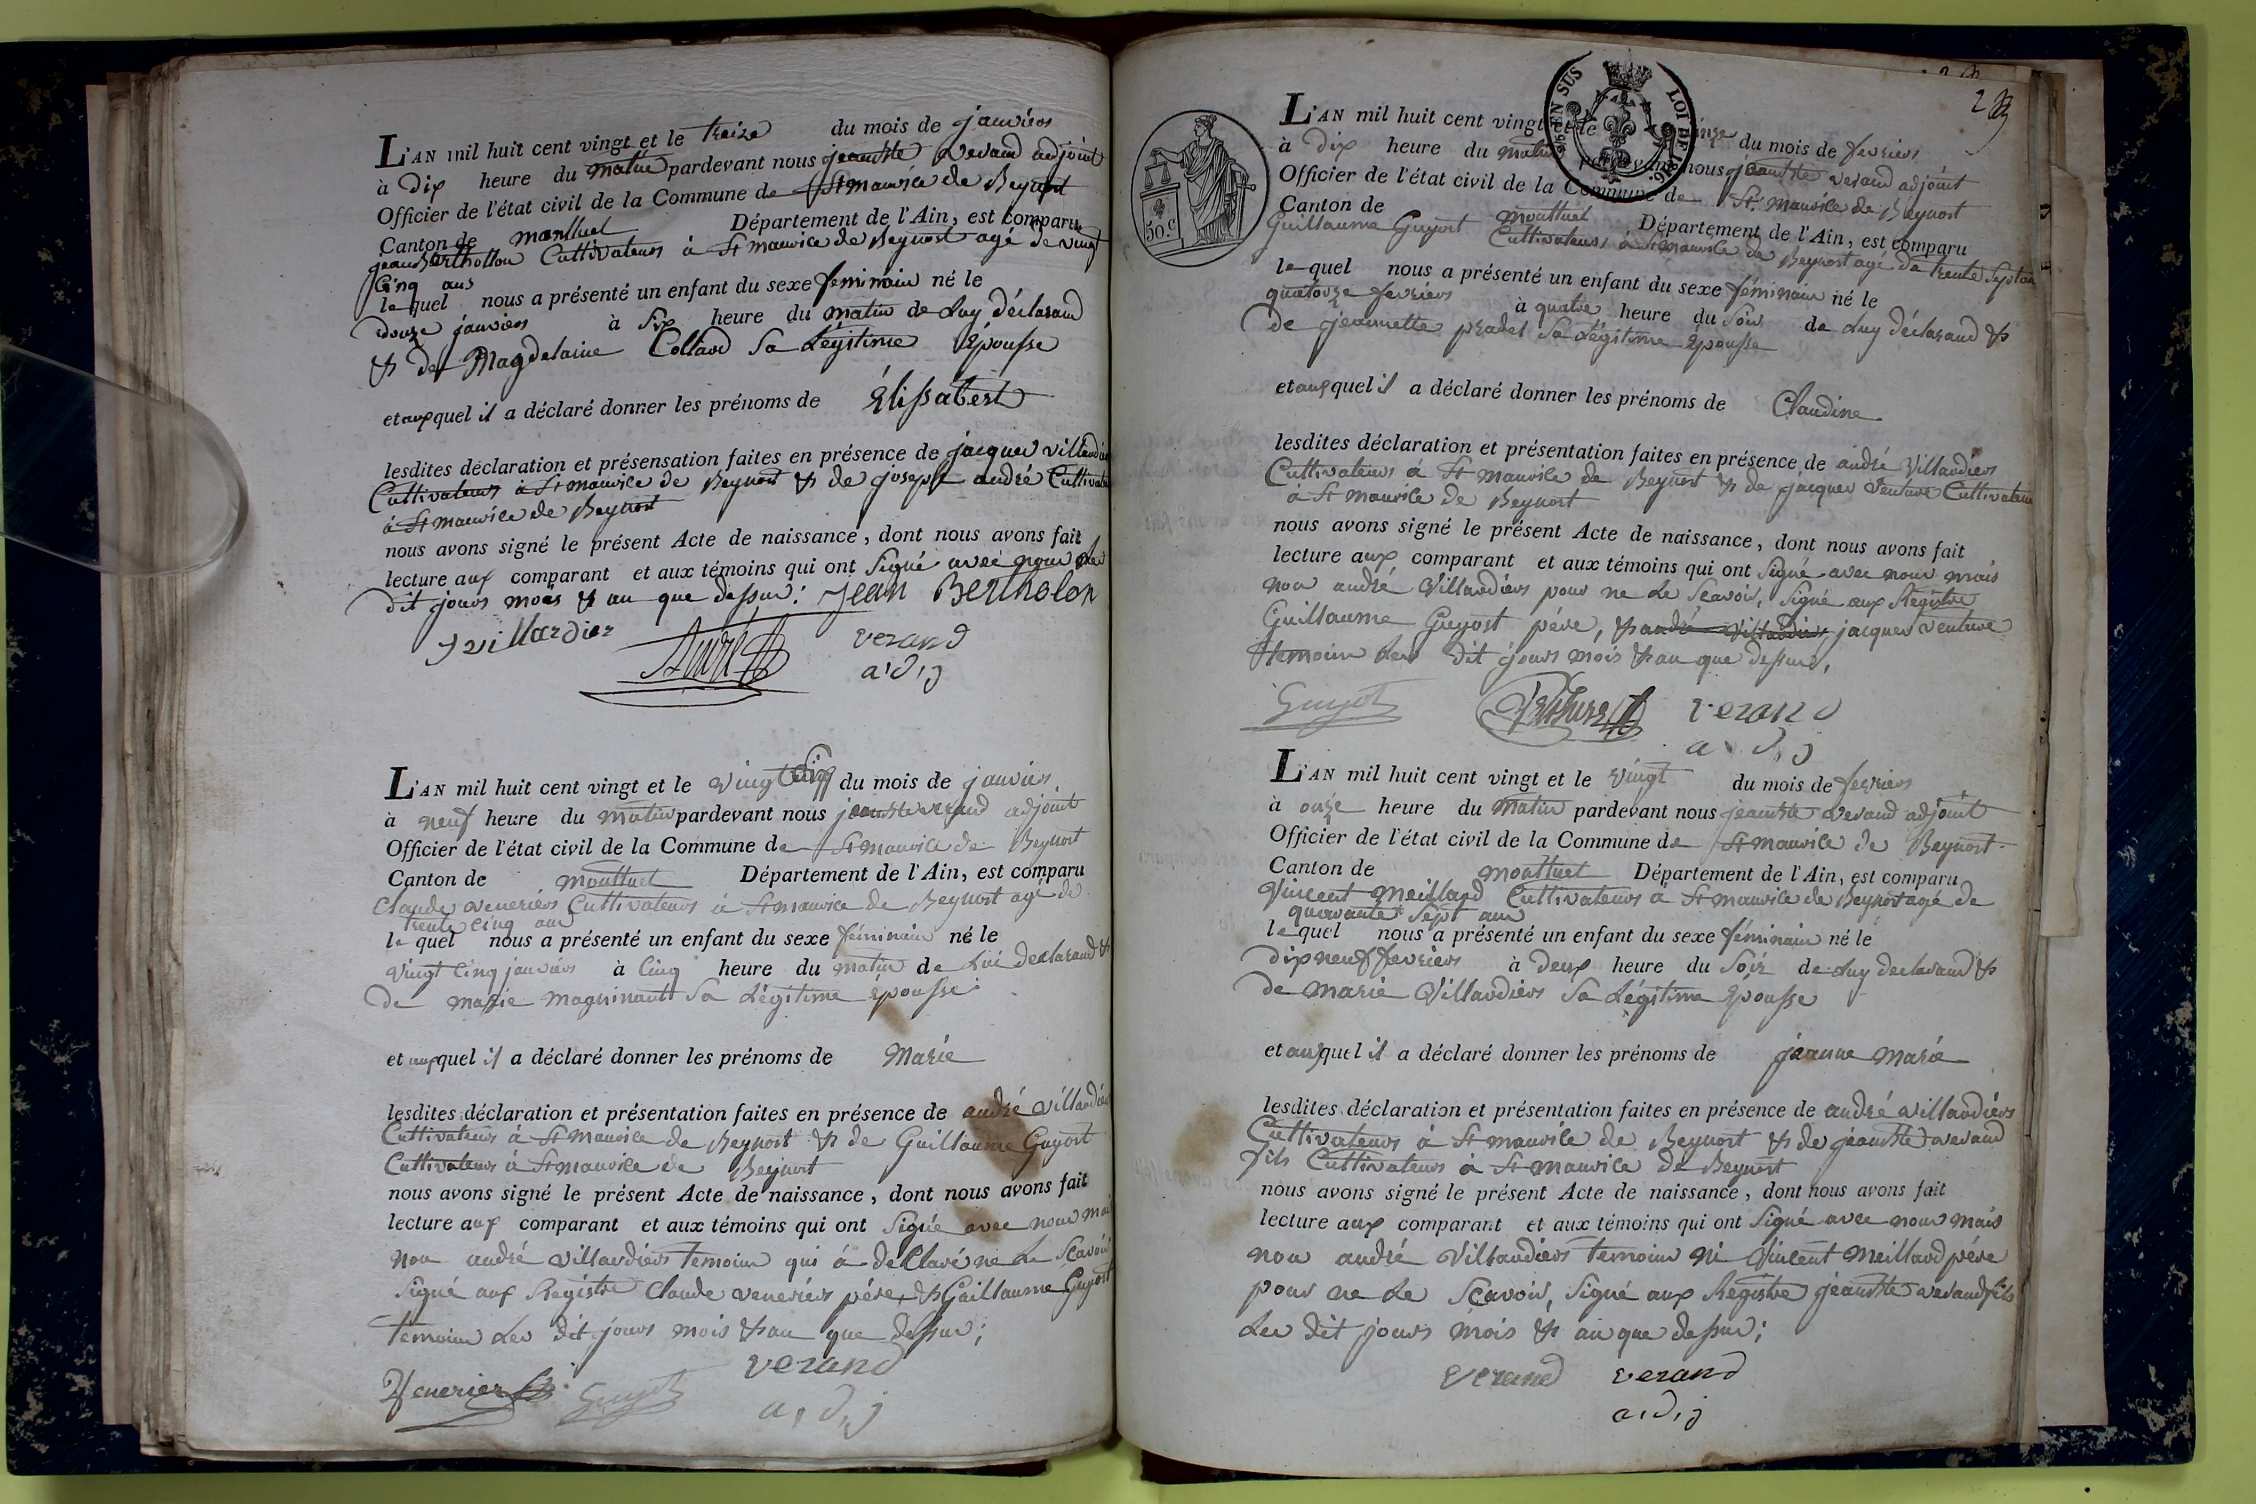 L'AN mil huit cent vingt et le treize du mois de janvier
à dix heure du matin pardevant nous jean bte verand adjoint
Officier de l'état civil de la Commune de St maurice de Beynost
Canton de montluel Département de l'Ain, est comparu
jean Berthollon Cultivateur à St maurice de Beynost agé de vingt
Cinq ans
le quel nous a présenté un enfant du sexe feminin né le
douze janvier à six heure du matin de Luy déclarand
& de Magdelaine Collard Sa Légitime Épousse
et auxquel il a déclaré donner les prénoms de Élissabest
lesdites déclaration et présensation faites en présence de jacques villardier
Cultivateur à St maurice de Beynost & de joseph andré Cultivateur
à St maurice de Beynost
nous avons signé le présent Acte de naissance, dont nous avons fait
lecture aux comparant et aux témoins qui ont Signé avec nous Les
dit jours mois & an que dessus: Jean Bertholon
J villardier André verand
a,d,j
L'AN mil huit cent vingt et le vingt six du mois de janvier
à neuf heure du matin pardevant nous jean bte verand adjoint
Officier de l'état civil de la Commune de St maurice de Beynost
Canton de montluel Département de l'Ain, est comparu
Claude venerier Cultivateur à St maurice de Beynost agé de
trente cinq ans
le quel nous a présenté un enfant du sexe féminin né le
vingt Cinq janvier à Cinq heure du matin de Lui declarand &
de marie magninant Sa Légitime Epousse
et auxquel il a déclaré donner les prénoms de Marie
lesdites déclaration et présentation faites en présence de andré villardier
Cultivateur à St maurice de Beynost & de Guillaume Guyost
Cultivateur à St maurice de Beynost
nous avons signé le présent Acte de naissance, dont nous avons fait
lecture aux comparant et aux témoins qui ont Signé avec nous mais
non andré villardier temoin qui à déClaré ne Le Scavoir
Signé aux Régistre Claude venerier pére, & Guillaume Guyost
temoin Les dit jours mois & an que dessus;
Venerier Guyot verand
a,d,j
23
L'AN mil huit cent vingt et le du mois de fevrier
à dix heure du matin pardevant nous jean bte verand adjoint
Officier de l'état civil de la Commune de St. maurice de Beynost
Canton de montluel Département de l'Ain, est comparu
Guillaume Guyost Cultivateur à St maurice de Beynost agé de trente Sept ans
le quel nous a présenté un enfant du sexe féminin né le
quatorze fevrier à quatre heure du Soir de Luy déclarand &
de jeannette pradel Sa Légitime Épousse
et auxquel il a déclaré donner les prénoms de Claudine
lesdites déclaration et présentation faites en présence de andré Villardier
Cultivateur à St maurice de Beynost & de jacques Venture Cultivateur
à St maurice de Beynost
nous avons signé le présent Acte de naissance, dont nous avons fait
lecture aux comparant et aux témoins qui ont Signé avec nous mais
non andré Villardier pour ne Le Scavoir, Signé aux Régistre
Guillaume Guyost pére, & andré Villardier jacques venture
temoin Les dit jours mois & an que dessus,
Guyot Venture verand
a,d,j
50.c
EN SUS LOI DE 1816.
L'AN mil huit cent vingt et le vingt du mois de fevrier
à onze heure du matin pardevant nous jean bte verand adjoint
Officier de l'état civil de la Commune de St maurice de Beynost
Canton de montluel Département de l'Ain, est comparu
Vincent Meilland Cultivateur à St maurice de Beynost agé de
quarante Sept ans
le quel nous a présenté un enfant du sexe féminin né le
dix neuf fevrier à deux heure du Soir de Luy declarand &
de marie Villardier Sa Légitime Epousse
et auxquel il a déclaré donner les prénoms de jeanne marie
lesdites déclaration et présentation faites en présence de andré villardier
Cultivateur à St maurice de Beynost & de jean bte verand
fils Cultivateur à St maurice de Beynost
nous avons signé le présent Acte de naissance, dont nous avons fait
lecture aux comparant et aux témoins qui ont Signé avec nous mais
non andré Villardier temoin ni Vincent Meilland pére
pour ne Le Scavoir, Signé aux Régistre jean bte verand fils
Les dit jours mois & an que dessus;
verand verand
a,d,j